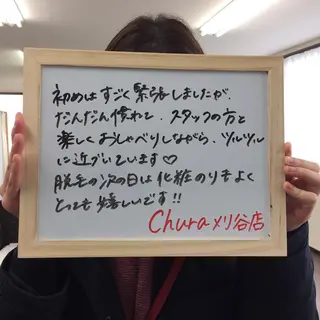 初めはすごく緊張しましたが、
だんだん慣れて、スタッフの方と
楽しくおしゃべりしながら、ツルツル
に近づいています♡
脱毛の次の日は化粧のりもよく
とっても嬉しいです!!
Chura刈谷店